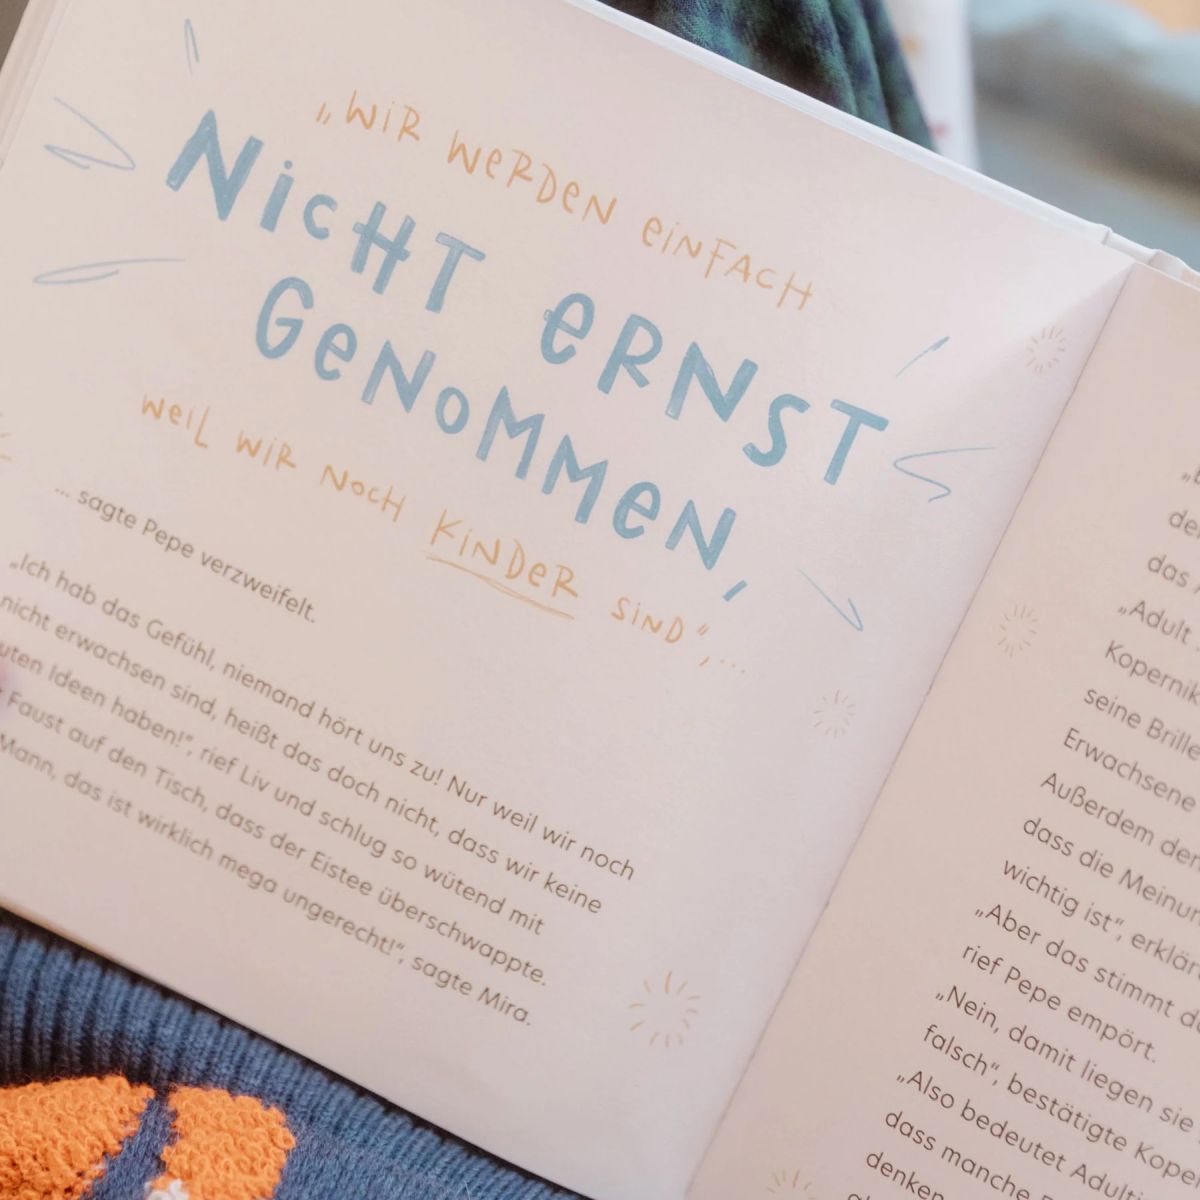 „WiR WeRDeN eiNFACH
NicHT eRNST
GeNoMMeN,
weiL wiR NocH KiNDeR SiND“,...
... sagte Pepe verzweifelt.
„Ich hab das Gefühl, niemand hört uns zu! Nur weil wir noch
nicht erwachsen sind, heißt das doch nicht, dass wir keine
uten Ideen haben!“, rief Liv und schlug so wütend mit
Faust auf den Tisch, dass der Eistee überschwappte.
Mann, das ist wirklich mega ungerecht!“, sagte Mira.
das
„Adult
Kopernik
seine Brille
Erwachsene
Außerdem der
dass die Meinun
wichtig ist“, erklär
„Aber das stimmt d
rief Pepe empört.
„Nein, damit liegen sie
falsch“, bestätigte Kope
„Also bedeutet Adult
dass manche
denken